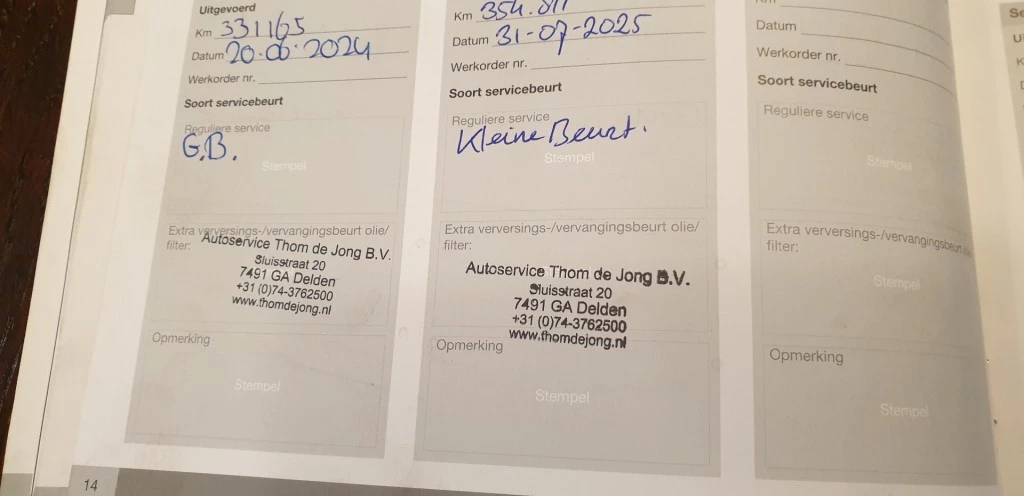 Uitgevoerd
Km 331165
Datum 20-06-2024
Werkorder nr.
Soort servicebeurt
Reguliere service
G.B.
Stempel
Extra verversings-/vervangingsbeurt olie/
filter:
Autoservice Thom de Jong B.V.
Sluisstraat 20
7491 GA Delden
+31 (0)74-3762500
www.thomdejong.nl
Opmerking
Stempel
14
Km
Datum 31-07-2025
Werkorder nr.
Soort servicebeurt
Reguliere service
Kleine Beurt.
Stempel
Extra verversings-/vervangingsbeurt olie/
filter:
Autoservice Thom de Jong B.V.
Sluisstraat 20
7491 GA Delden
+31 (0)74-3762500
www.thomdejong.nl
Opmerking
Stempel
Datum
Werkorder nr.
Soort servicebeurt
Reguliere service
Stempel
Extra verversings-/vervangingsbeurt
filter:
Stempel
Opmerking
Stempel